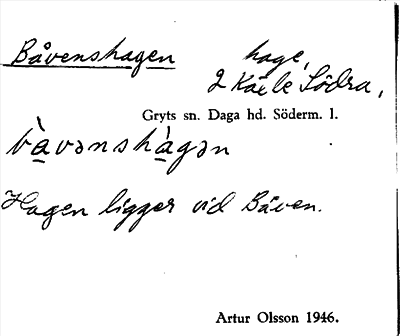 Båvenshagen hage,
2 Kärle Södra,
Gryts sn. Daga hd. Söderm. l.
bàvənshàgən
Hagen ligger vid Båven.
Artur Olsson 1946.